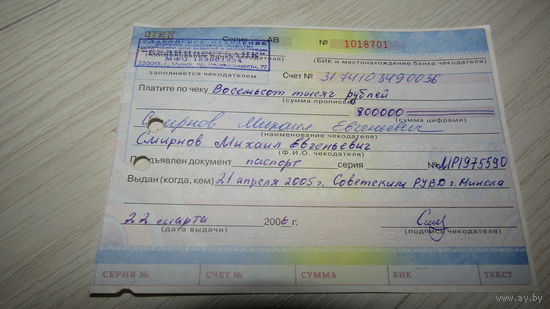 ЧЕК
Серия АВ № 1018701
СЛАВЯНСКОЕ ОТДЕЛЕНИЕ
"БЕЛИНВЕСТБАНК"
220073, г. Минск, 77
(БИК и местонахождение банка чекодателя)
заполняется чекодателем
Счет № 3174103490036
Платите по чеку Восемьсот тысяч рублей
(сумма прописью)
800000
(сумма цифрами)
Смирнов Михаил Евгеньевич
(наименование чекодателя)
Смирнов Михаил Евгеньевич
(Ф.И.О. чекодателя)
Предъявлен документ паспорт серия № МР1975590
Выдан (когда, кем) 21 апреля 2005 г. Советским РУВД г. Минска
22 марта 2006 г.
(дата выдачи)
(подпись чекодателя)
СЕРИЯ № СЧЕТ № СУММА БИК ТЕКСТ
www.ay.by